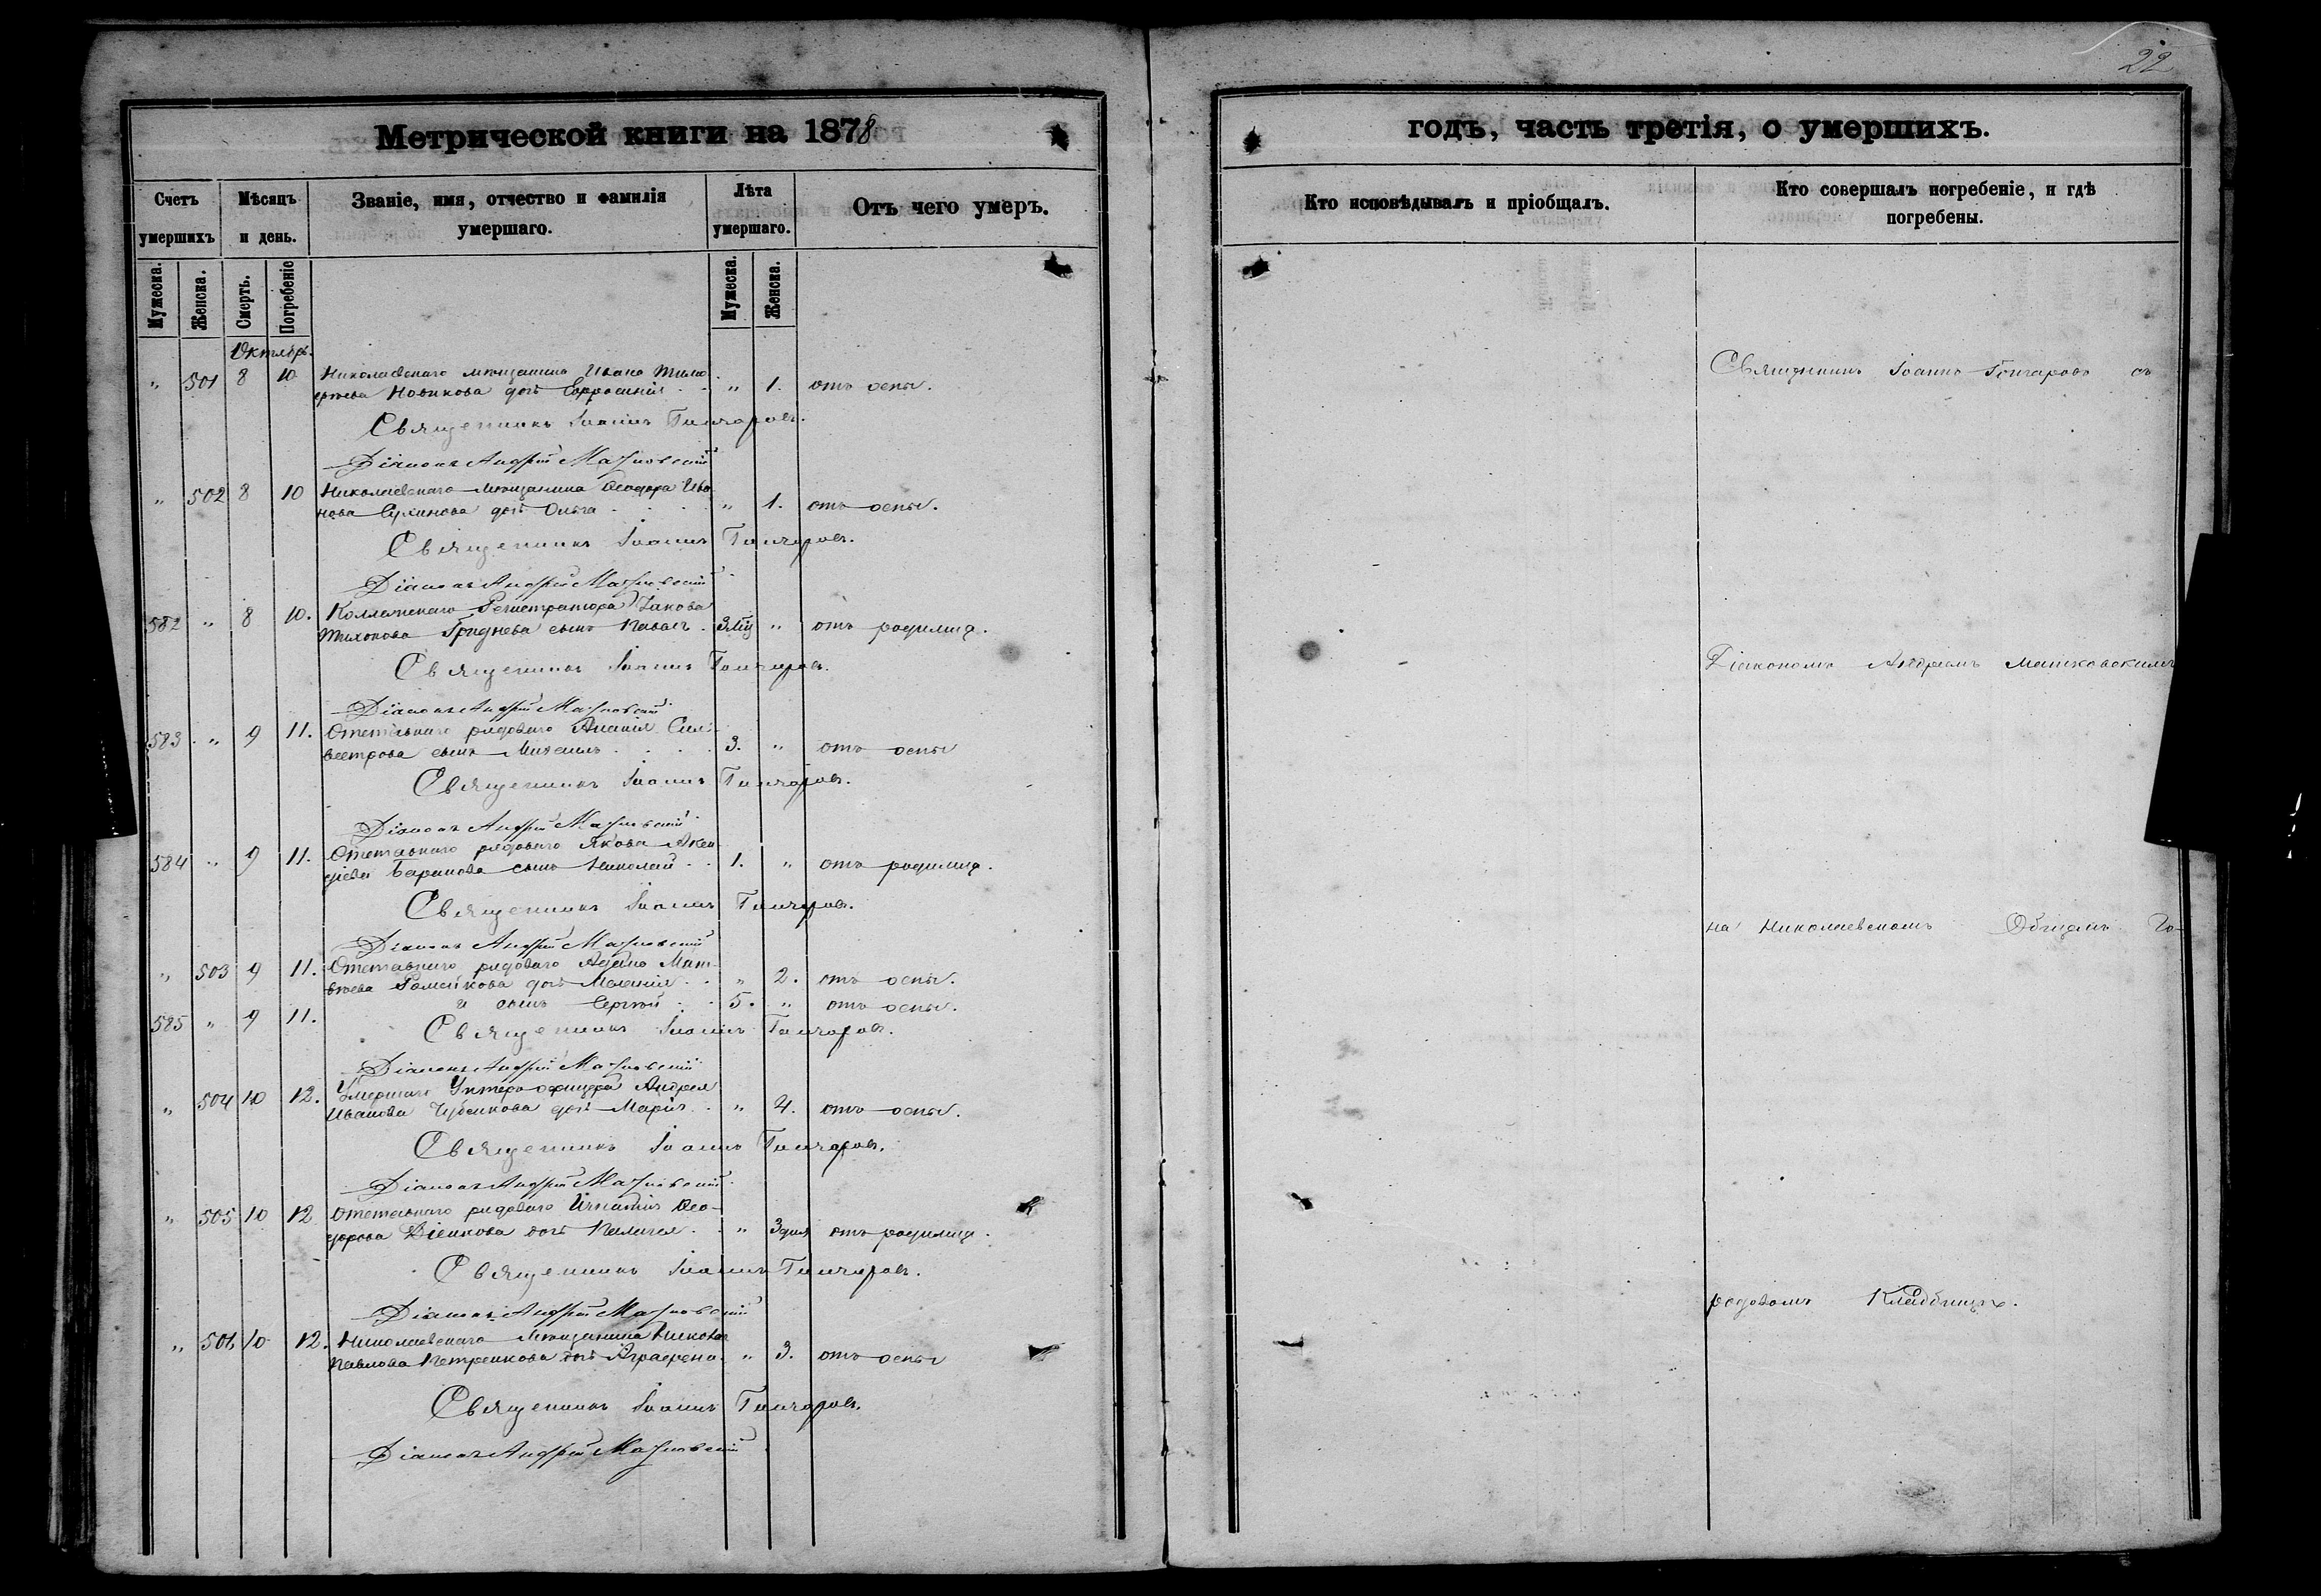 22
Метрической книги на 1878
годъ, часть третія, о умершихъ.
Счетъ умершихъ
Мѣсяцъ и день.
Званіе, имя, отчество и фамилія умершаго.
Лѣта умершаго.
Отъ чего умеръ.
Кто исповѣдывалъ и пріобщалъ.
Кто совершалъ погребеніе, и гдѣ погребены.
Мужеска.
Женска.
Смерть.
Погребеніе
Мужеска.
Женска.
Октябрь.
" 501 8 10 Николаевскаго мѣщанина Ивана Тимо
ѳѣева Новикова дочь Евфросинія " 1. отъ оспы.
Священникъ Іоаннъ Гончаровъ.
Діаконъ Андрей Машковскій
" 502 8 10 Николаевскаго мѣщанина Ѳеодора Ива
нова дочь Ольга " 1. отъ оспы.
Священникъ Іоаннъ Гончаровъ.
Діаконъ Андрей Машковскій
582 " 8 10. Коллежскаго Регистратора Іакова
Тихонова Гриднева сынъ Павелъ " отъ родимца.
Священникъ Іоаннъ Гончаровъ.
Діаконъ Андрей Машковскій
583 " 9 11. Отставнаго рядоваго Ананія Сил
вестрова сынъ Михаилъ 3. " отъ оспы
Священникъ Іоаннъ Гончаровъ.
Діаконъ Андрей Машковскій
584 " 9 11. Отставнаго рядоваго Якова
Баранова сынъ Николай 1. " отъ родимца.
Священникъ Іоаннъ Гончаровъ.
Діаконъ Андрей Машковскій
" 503 9 11. Отставнаго рядоваго Мат-
вѣева дочь Меланія " 2. отъ оспы.
585 " 9 11. и сынъ Сергѣй 5. " отъ оспы.
Священникъ Іоаннъ Гончаровъ.
Діаконъ Андрей Машковскій
" 504 10 12. Умершаго Унтеръ-офицера Андрея
Иванова дочь Марія " 4. отъ оспы.
Священникъ Іоаннъ Гончаровъ.
Діаконъ Андрей Машковскій
" 505 10 12 Отставнаго рядоваго Игнатія Ѳео-
дорова дочь Пелагея " 3 дня отъ родимца.
Священникъ Іоаннъ Гончаровъ.
Діаконъ Андрей Машковскій
" 506 10 12. Николаевскаго мѣщанина
Павлова Петренкова дочь Аграфена " 3. отъ оспы
Священникъ Іоаннъ Гончаровъ.
Діаконъ Андрей Машковскій
Священникъ Іоаннъ Гончаровъ съ
Діакономъ Андреемъ Машковскимъ
на Николаевскомъ Общемъ Го-
родовомъ Кладбищѣ.